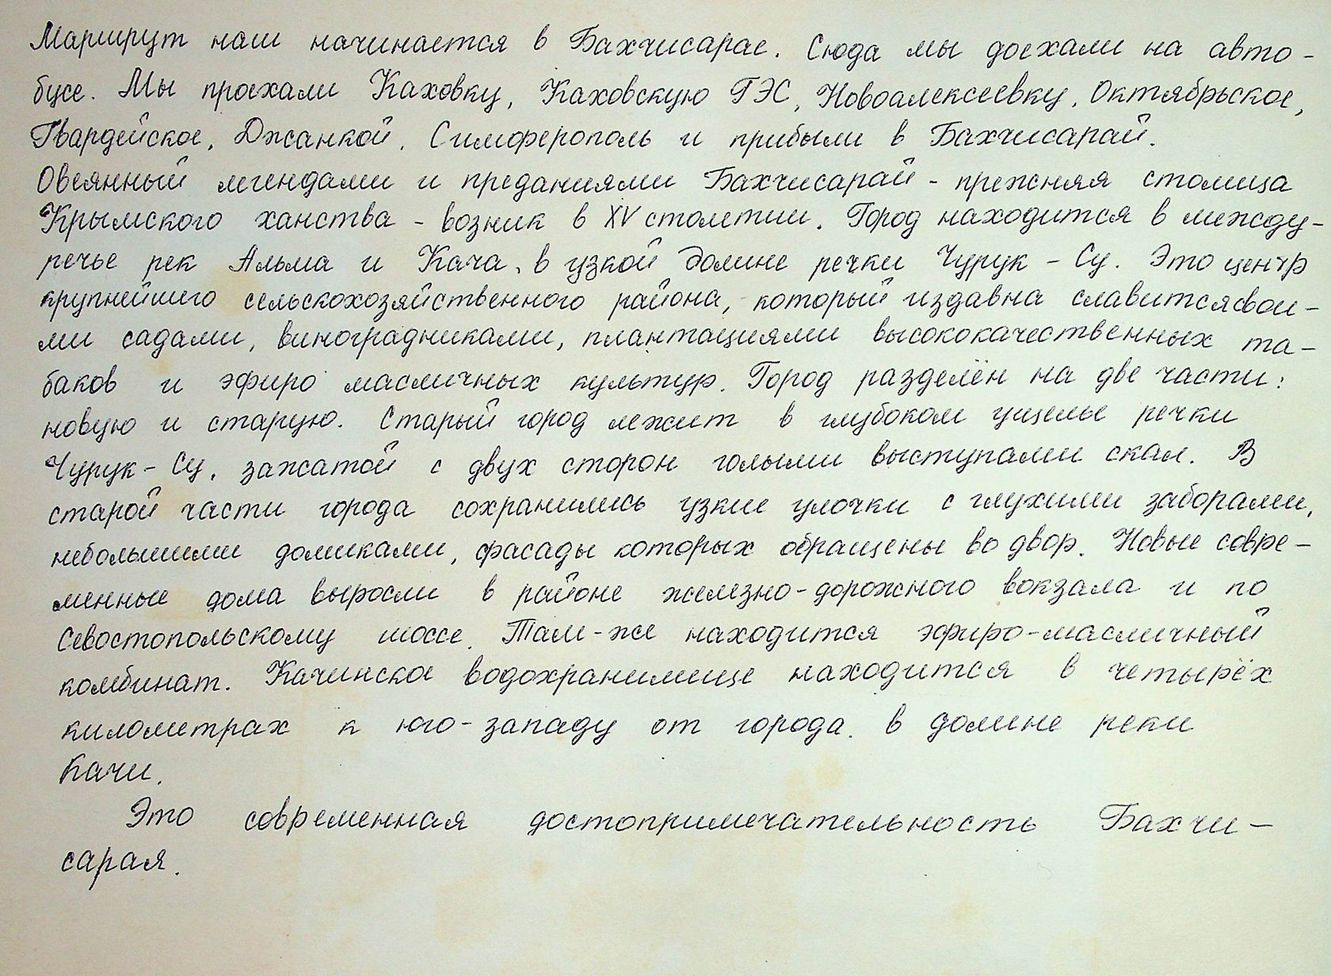 Маршрут наш начинается в Бахчисарае. Сюда мы доехали на авто-
бусе. Мы проехали Каховку, Каховскую ГЭС, Новоалексеевку, Октябрьское,
Гвардейское, Джанкой, Симферополь и прибыли в Бахчисарай.
Овеянный легендами и преданиями Бахчисарай - прежняя столица
Крымского ханства - возник в XV столетии. Город находится в между-
речье рек Альма и Кача, в узкой долине речки Чурук-Су. Это центр
крупнейшего сельскохозяйственного района, который издавна славится свои-
ми садами, виноградниками, плантациями высококачественных та-
баков и эфиро масличных культур. Город разделён на две части:
новую и старую. Старый город лежит в глубоком ущелье речки
Чурук-Су, зажатой с двух сторон голыми выступами скал. В
старой части города сохранились узкие улочки с глухими заборами,
небольшими домиками, фасады которых обращены во двор. Новые совре-
менные дома выросли в районе железно-дорожного вокзала и по
Севостопольскому шоссе. Там-же находится эфиро-масличный
комбинат. Качинское водохранилище находится в четырёх
километрах к юго-западу от города. в долине реки
Качи.
Это современная достопримечательность Бахчи-
сарая.